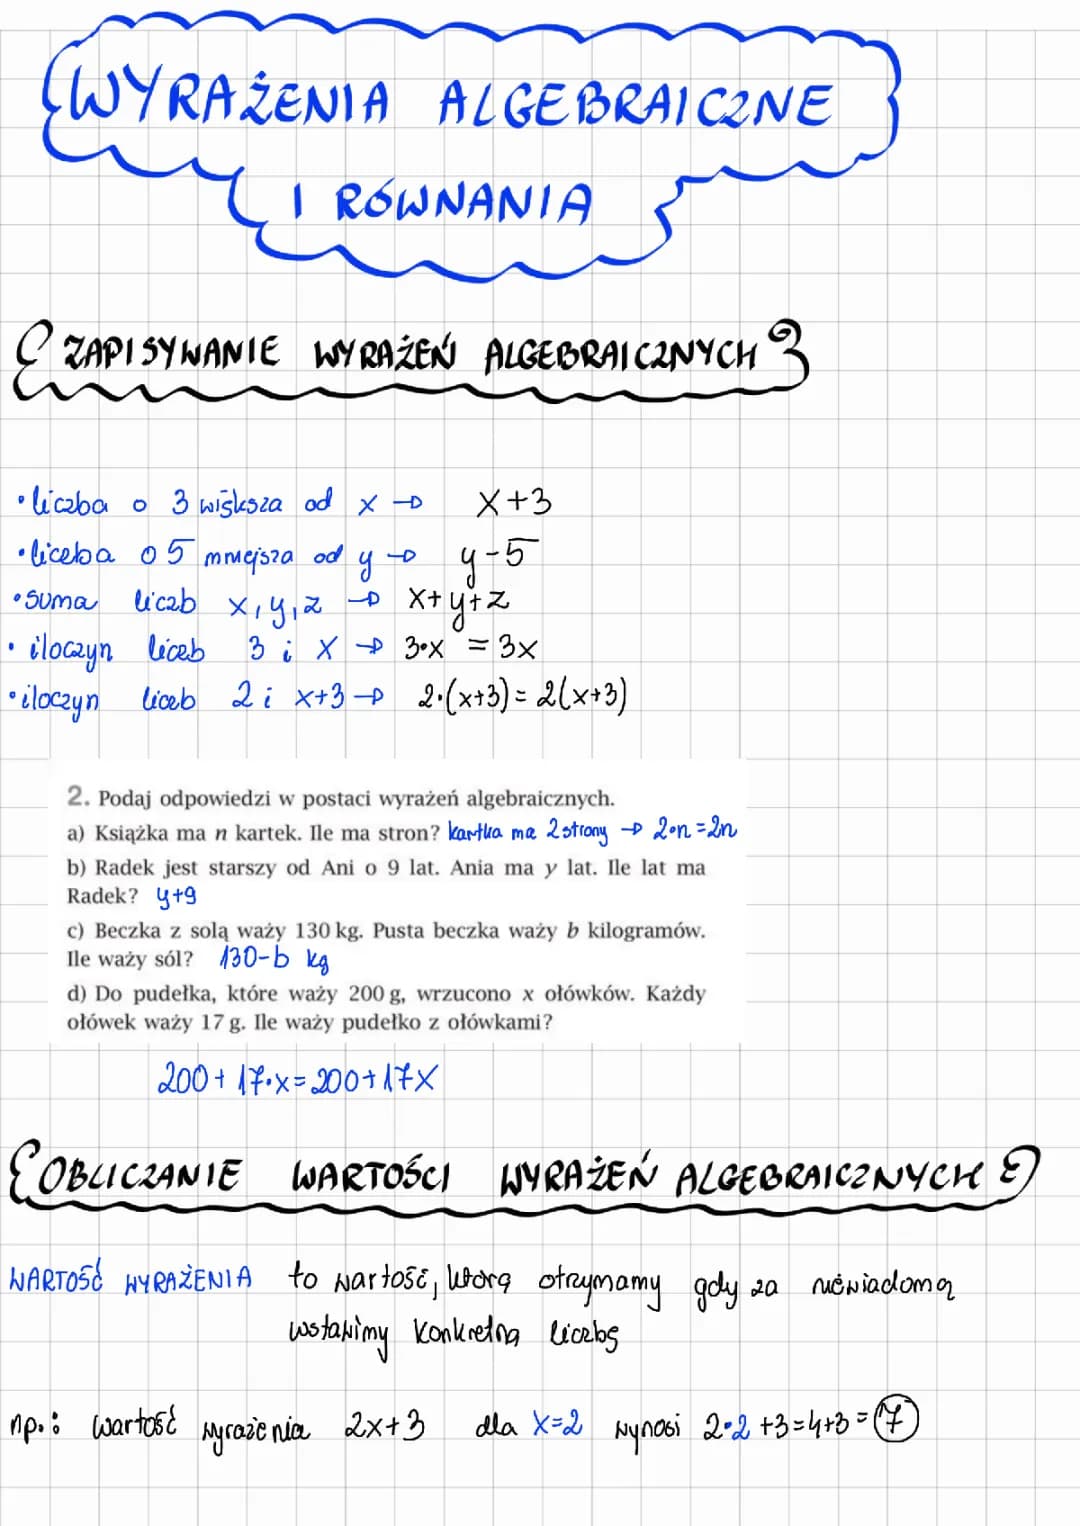 WYRAŻENIA ALGEBRAICZNE
I RÓWNANIA
ZAPISYWANIE WYRAŻEŃ ALGEBRAICZNYCH
• liczba o 3 większa od x → x+3
• liczba o 5 mniejsza od y → y-5
• suma liczb x, y, z → x+y+z
• iloczyn liczb 3 i x → 3·x = 3x
• iloczyn liczb 2 i x+3 → 2·(x+3) = 2(x+3)
2. Podaj odpowiedzi w postaci wyrażeń algebraicznych.
a) Książka ma n kartek. Ile ma stron? kartka ma 2 strony → 2·n = 2n
b) Radek jest starszy od Ani o 9 lat. Ania ma y lat. Ile lat ma
Radek? y+9
c) Beczka z solą waży 130 kg. Pusta beczka waży b kilogramów.
Ile waży sól? 130-b kg
d) Do pudełka, które waży 200 g, wrzucono x ołówków. Każdy
ołówek waży 17 g. Ile waży pudełko z ołówkami?
200 + 17·x = 200 + 17x
OBLICZANIE WARTOŚCI WYRAŻEŃ ALGEBRAICZNYCH
WARTOŚĆ WYRAŻENIA to wartość, którą otrzymamy gdy za niewiadomą
wstawimy konkretną liczbę
np.: wartość wyrażenia 2x+3 dla x=2 wynosi 2·2+3=4+3=7